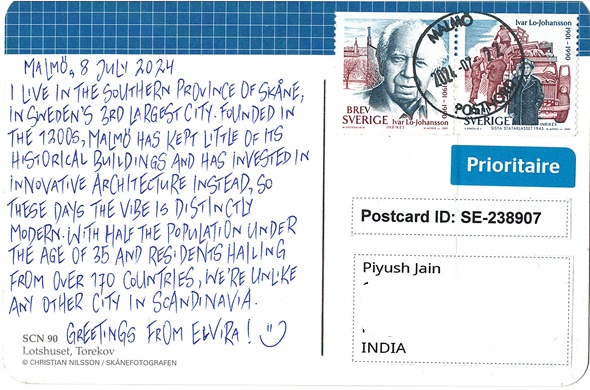 MALMÖ, 8 JULY 2024
I LIVE IN THE SOUTHERN PROVINCE OF SKÅNE,
IN SWEDEN'S 3RD LARGEST CITY. FOUNDED IN
THE 1200S, MALMÖ HAS KEPT LITTLE OF ITS
HISTORICAL BUILDINGS AND HAS INVESTED IN
INNOVATIVE ARCHITECTURE INSTEAD, SO
THESE DAYS THE VIBE IS DISTINCTLY
MODERN. WITH HALF THE POPULATION UNDER
THE AGE OF 35 AND RESIDENTS HAILING
FROM OVER 170 COUNTRIES, WE'RE UNLIKE
ANY OTHER CITY IN SCANDINAVIA.
GREETINGS FROM ELVIRA!
SCN 90
Lotshuset, Torekov
© CHRISTIAN NILSSON / SKÅNEFOTOGRAFEN
BREV
SVERIGE
Ivar Lo-Johansson
INRIKES
1901-1990
Ivar Lo-Johansson
1901-1990
SVERIGE
INRIKES
SISTA STATARLASSET 1945
MALMÖ
Prioritaire
Postcard ID: SE-238907
Piyush Jain
INDIA